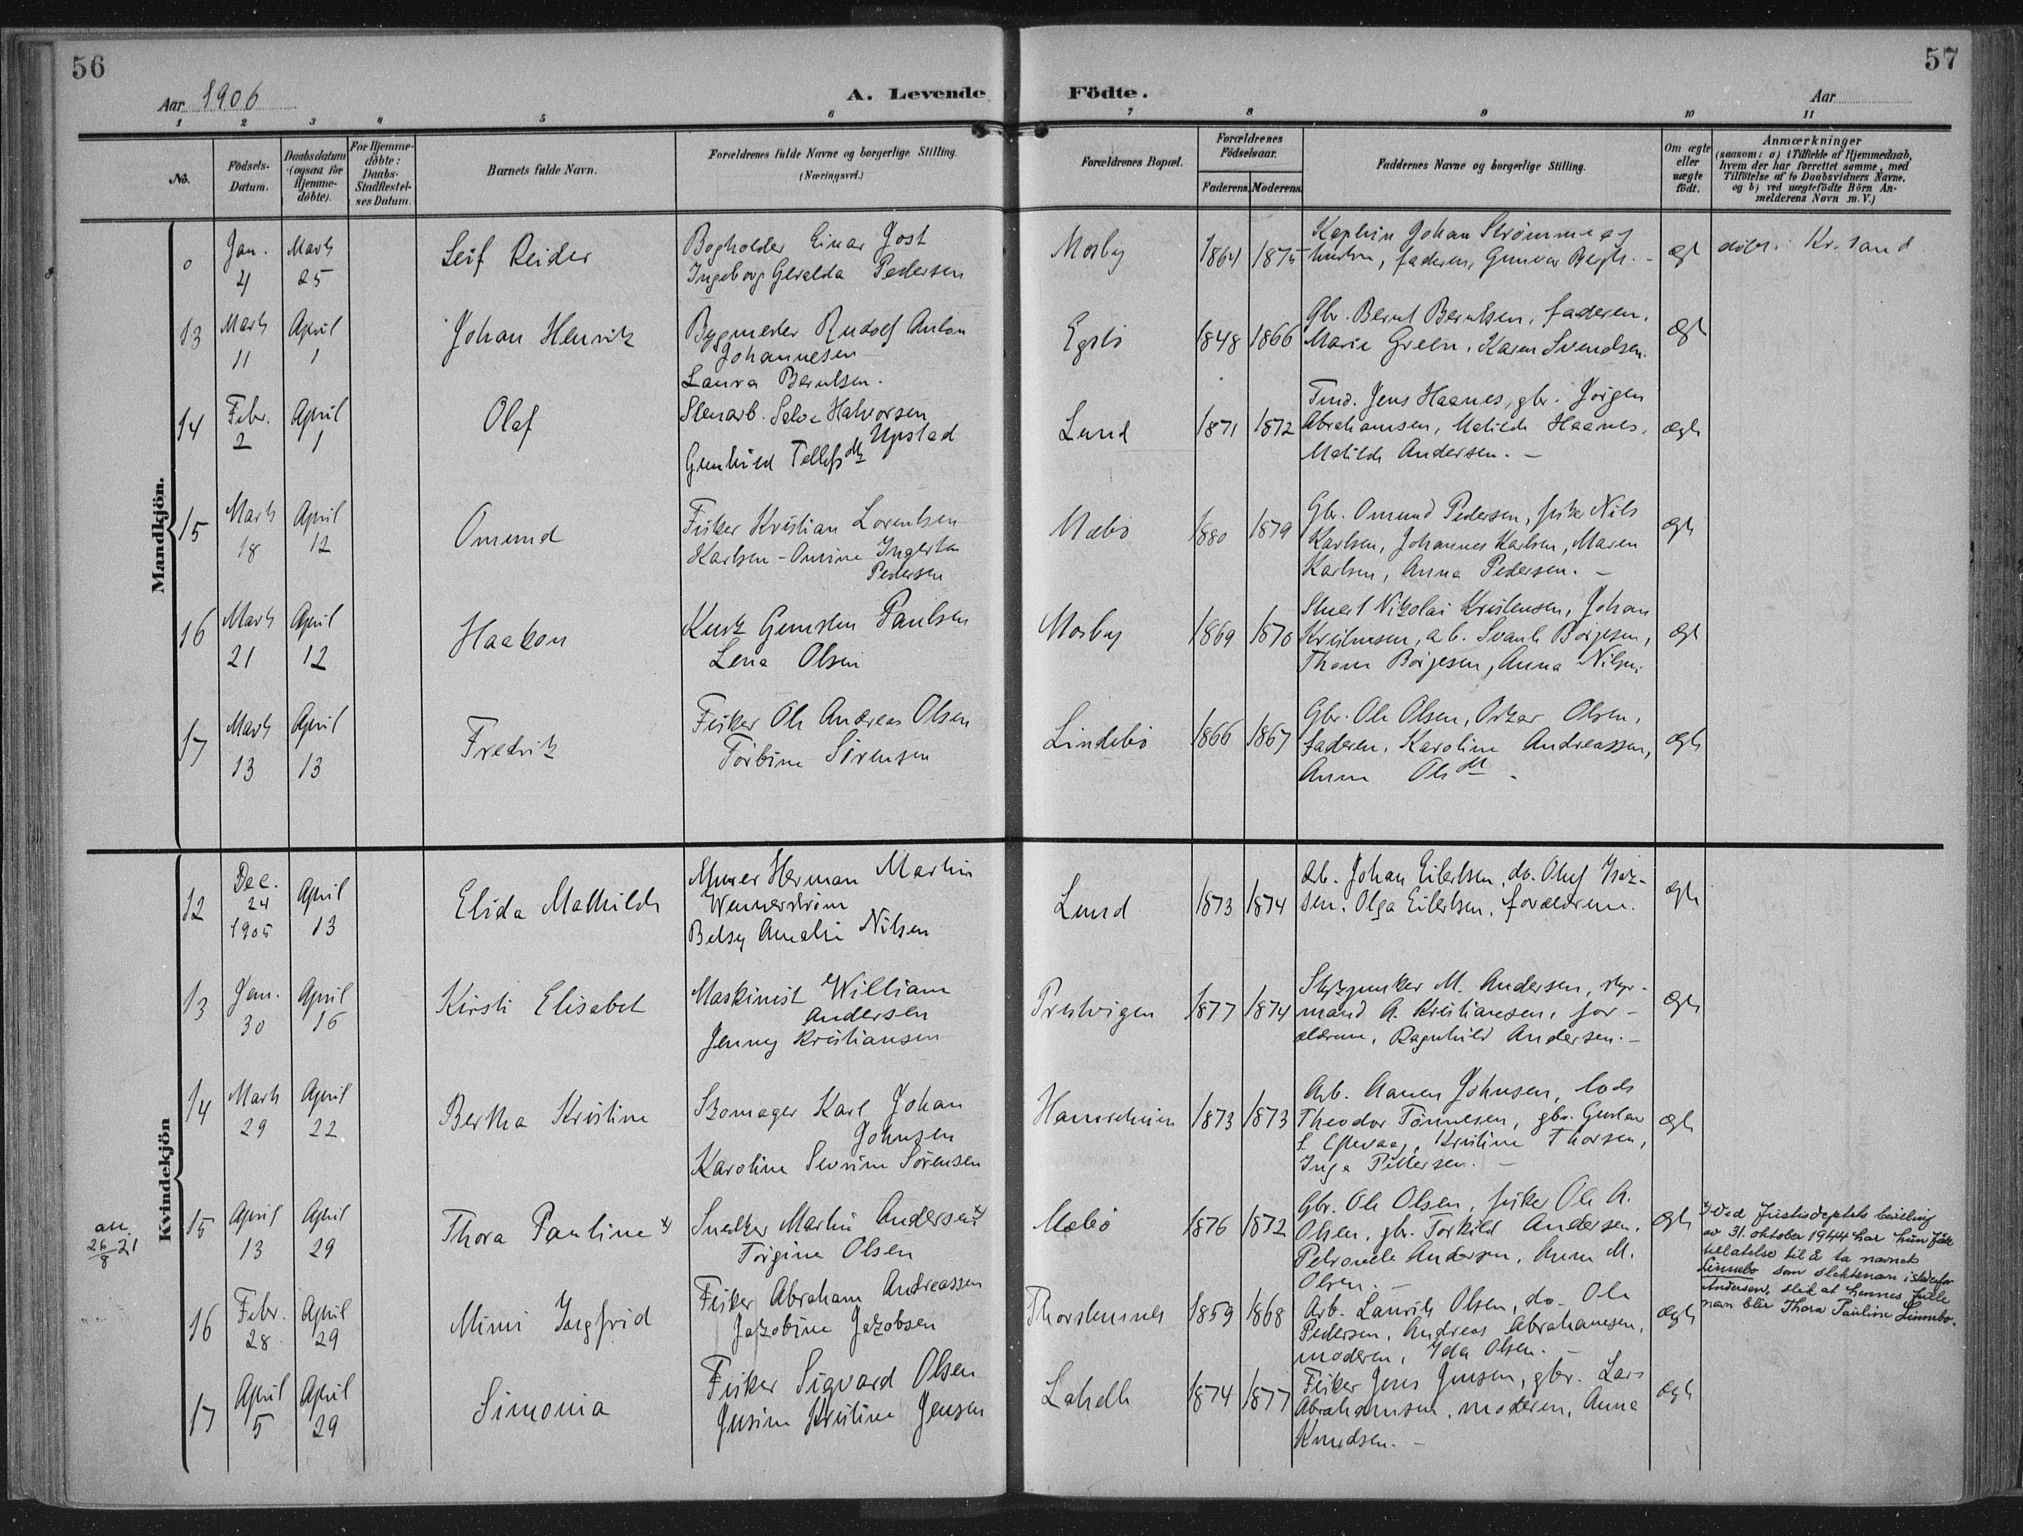 56
57
Aar 1906
A. Levende Födte.
Aar
1 2 3 4 5 6 7 8 9 10 11
No.
Födsels-
Datum.
Daabsdatum
(ogsaa for
Hjemme-
döbte).
For Hjemme-
döbte:
Daabs-
Stadfæstel-
ses Datum.
Barnets fulde Navn.
Forældrenes fulde Navne og borgerlige Stilling.
(Næringsvei.)
Forældrenes Bopæl.
Forældrenes
Födselsaar.
Faderens. Moderens.
Faddernes Navne og borgerlige Stilling.
Om ægte
eller
uægte
födt.
Anmærkninger
(saasom: a) i Tilfælde af Hjemmedaab,
hvem der har forrettet samme, med
Tilföielse af to Daabsvidners Navne,
og b) ved uægtefödte Börn An-
melderens Navn m. V.)
Mandkjön.
Jan. 4
Marts 25
Leif Reider
Bogholder Einar Jost
Ingeborg Geralda Pedersen
Mosby
1864 1875
Johan Strömme og
hustru, faderen, Gunvor
ægt
döbt i Kr.sand
13
Marts 11
April 1
Johan Henrik
Bygmester Rudolf Anton
Johannesen
Laura Berntsen.
Egsbö
1848 1866
Gbr. Bernt Berntsen, faderen,
Marie Green, Karen Svendsen.
ægt
14
Febr. 2
April 1
Olaf
Stenarb. Halvorsen
Upstad
Gunhild Tellefsdtr
Lund
1871 1872
Jens Haanes, gbr. Jörgen
Abrahamsen, Matilde Haanes,
Matilde Andersen. –
ægte
15
Marts 18
April 12
Omund
Fisker Kristian Lorentsen
Karlsen – Omine Ingerta
Pedersen
Mæbö
1880 1879
Gbr. Omund Pedersen, fisker Nils
Karlsen, Johannes Karlsen, Maren
Karlsen, Anna Pedersen. –
ægte
16
Marts 21
April 12
Haakon
Kusk Gunsten Paulsen
Lena Olsen
Mosby
1869 1870
Nikolai Kristensen, Johan
Kristensen, Börgesen,
Börgesen, Anna Nilsen.
ægte
17
Marts 13
April 13
Fredrik
Fisker Ole Andreas Olsen
Törbine Sörensen
Lindebö
1866 1867
Gbr. Ole Olsen, Oskar Olsen,
faderen, Karoline Andreassen,
Anne Olsdtr
ægte
Kvindekjön
12
Dec. 24 1905
April 13
Elida Mathilde
Murer Herman Martin
Wennerström
Betsy Amalie Nilsen
Lund
1873 1874
Arb. Johan Eilertsen, do. Oluf Isak-
sen, Olga Eilertsen, forældrene.
ægte
13
Jan. 30
April 16
Kirsti Elisabet
Maskinist William
Andersen
Jenny Kristiansen
Prestvigen
1877 1874
M. Andersen, styr-
mand A. Kristiansen, for-
ældrene, Ragnhild Andersen. –
ægte
14
Marts 29
April 22
Bertha Kristine
Skomager Karl Johan
Johnsen
Karoline Severine Sörensen
1873 1873
Arb. Aanen Johnsen, lods
Theodor Tönnesen, gbr. Gustav
Kristine Thorsen,
Inga Pettersen. –
ægte
an. 26/8 21
15
April 13
April 29
Thora Pauline x)
Snedker Martin Andersen x)
Torgine Olsen
Mæbö
1876 1872
Gbr. Ole Olsen, fisker Ole A.
Olsen, gbr. Torkild Andersen,
Petronelle Andersen, Anna M.
Olsen. –
ægte
x) Ved Justisdeptets bevilling
av 31. oktober 1944 har hun fått
tillatelse til å ta navnet
Linnebo som slektsnavn istedenfor
Andersen, slik at hennes fulle
navn blir Thora Pauline Linnebo.
16
Febr. 28
April 29
Mimi Ingfrid
Fisker Abraham Andreassen
Jakobine Jakobsen
Thorstensnes
1859 1868
Arb. Laurits Olsen, do. Ole
Pedersen, Andreas Abrahamsen,
moderen, Ida Olsen. –
ægte
17
April 5
April 29
Simonia
Fisker Sigvard Olsen
Jensine Kristine Jensen
Lahelle
1874 1877
Fisker Jens Jensen, gbr. Lars
Abrahamsen, moderen, Anna
Knudsen. –
ægte